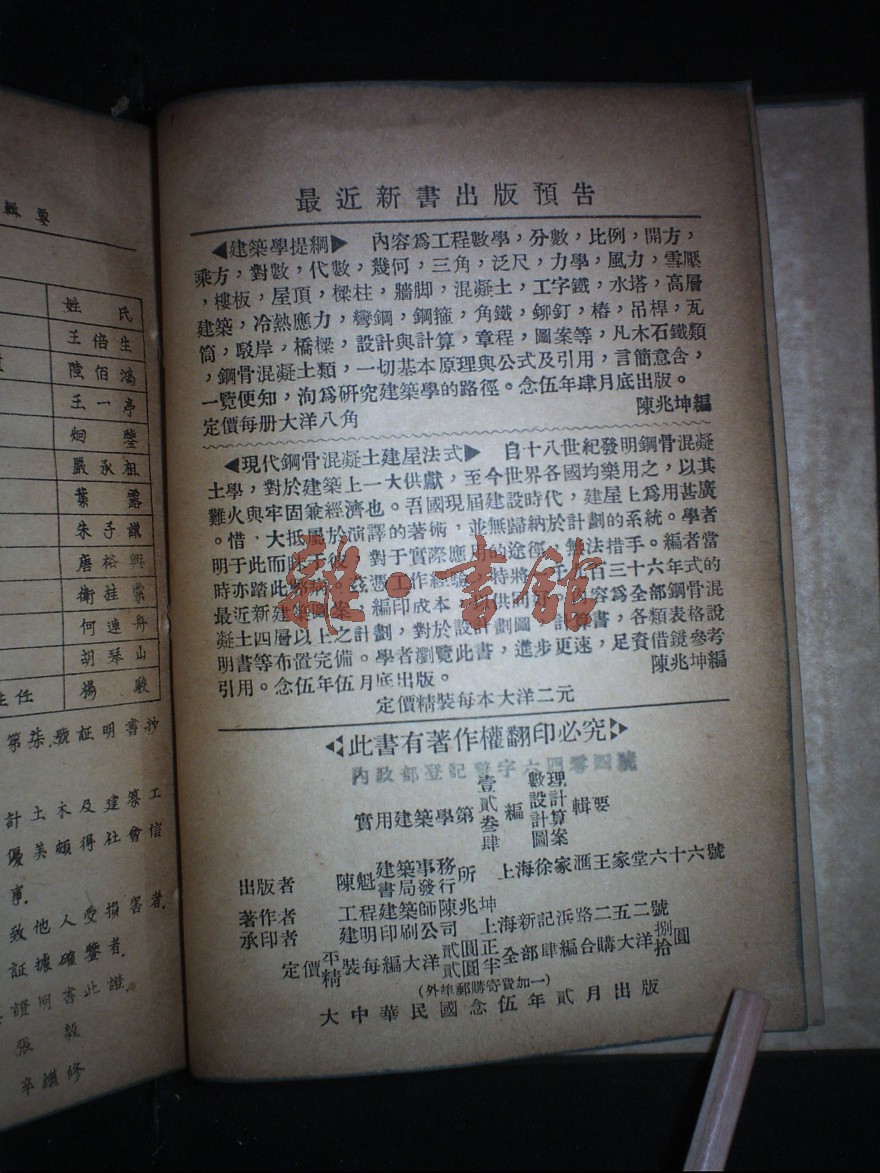 最近新書出版預告
◀建築學提綱▶ 內容爲工程數學，分數，比例，開方，
乘方，對數，代數，幾何，三角，泛尺，力學，風力，雪壓
，樓板，屋頂，樑柱，牆脚，混凝土，工字鐵，水塔，高層
建築，冷熱應力，彎鋼，鋼箍，角鐵，鉚釘，樁，吊桿，瓦
筒，駁岸，橋樑，設計與計算，章程，圖案等，凡木石鐵類
，鋼骨混凝土類，一切基本原理與公式及引用，言簡意含，
一覽便知，洵爲研究建築學的路徑。念伍年肆月底出版。
定價每册大洋八角 陳兆坤編
◀現代鋼骨混凝土建屋法式▶ 自十八世紀發明鋼骨混凝
土學，對於建築上一大供獻，至今世界各國均樂用之，以其
難火與牢固兼經濟也。吾國現屆建設時代，建屋上爲用甚廣
。惜，大抵屬於演譯的著術，並無歸納於計劃的系統。學者
明于此而昧于彼，對于實際應用的途徑，無法措手。編者當
時亦踏此弊病，茲憑工作經驗，特將一千九百三十六年式的
最近新建築圖案，編印成本，以供同好。內容爲全部鋼骨混
凝土四層以上之計劃，對於設計劃圖，計算書，各類表格說
明書等布置完備。學者瀏覽此書，進步更速，足資借鏡參考
引用。念伍年伍月底出版。 陳兆坤編
定價精裝每本大洋二元
◀此書有著作權翻印必究▶
內政部登記警字六四零四號
實用建築學第壹貳叁肆編數理設計計算圖案輯要
出版者 陳魁建築事務書局發行所 上海徐家滙王家堂六十六號
著作者 工程建築師陳兆坤
承印者 建明印刷公司 上海新記浜路二五二號
定價平精裝每編大洋貳圓正貳圓半全部肆編合購大洋捌拾圓
(外埠郵購寄費加一)
大中華民國念伍年貳月出版
雜·書館
輯要
姓氏
王倍生
陸佰鴻
王一亭
嚴承祖
葉露
朱子謙
唐裕興
衛桂棠
何連舟
胡琴山
主任 楊殿
第柒號証明書抄
計土木及建築工
優美頗得社會信
事.
致他人受損害者.
証據確鑒者.
證明書此證.
張毅
辛讌修